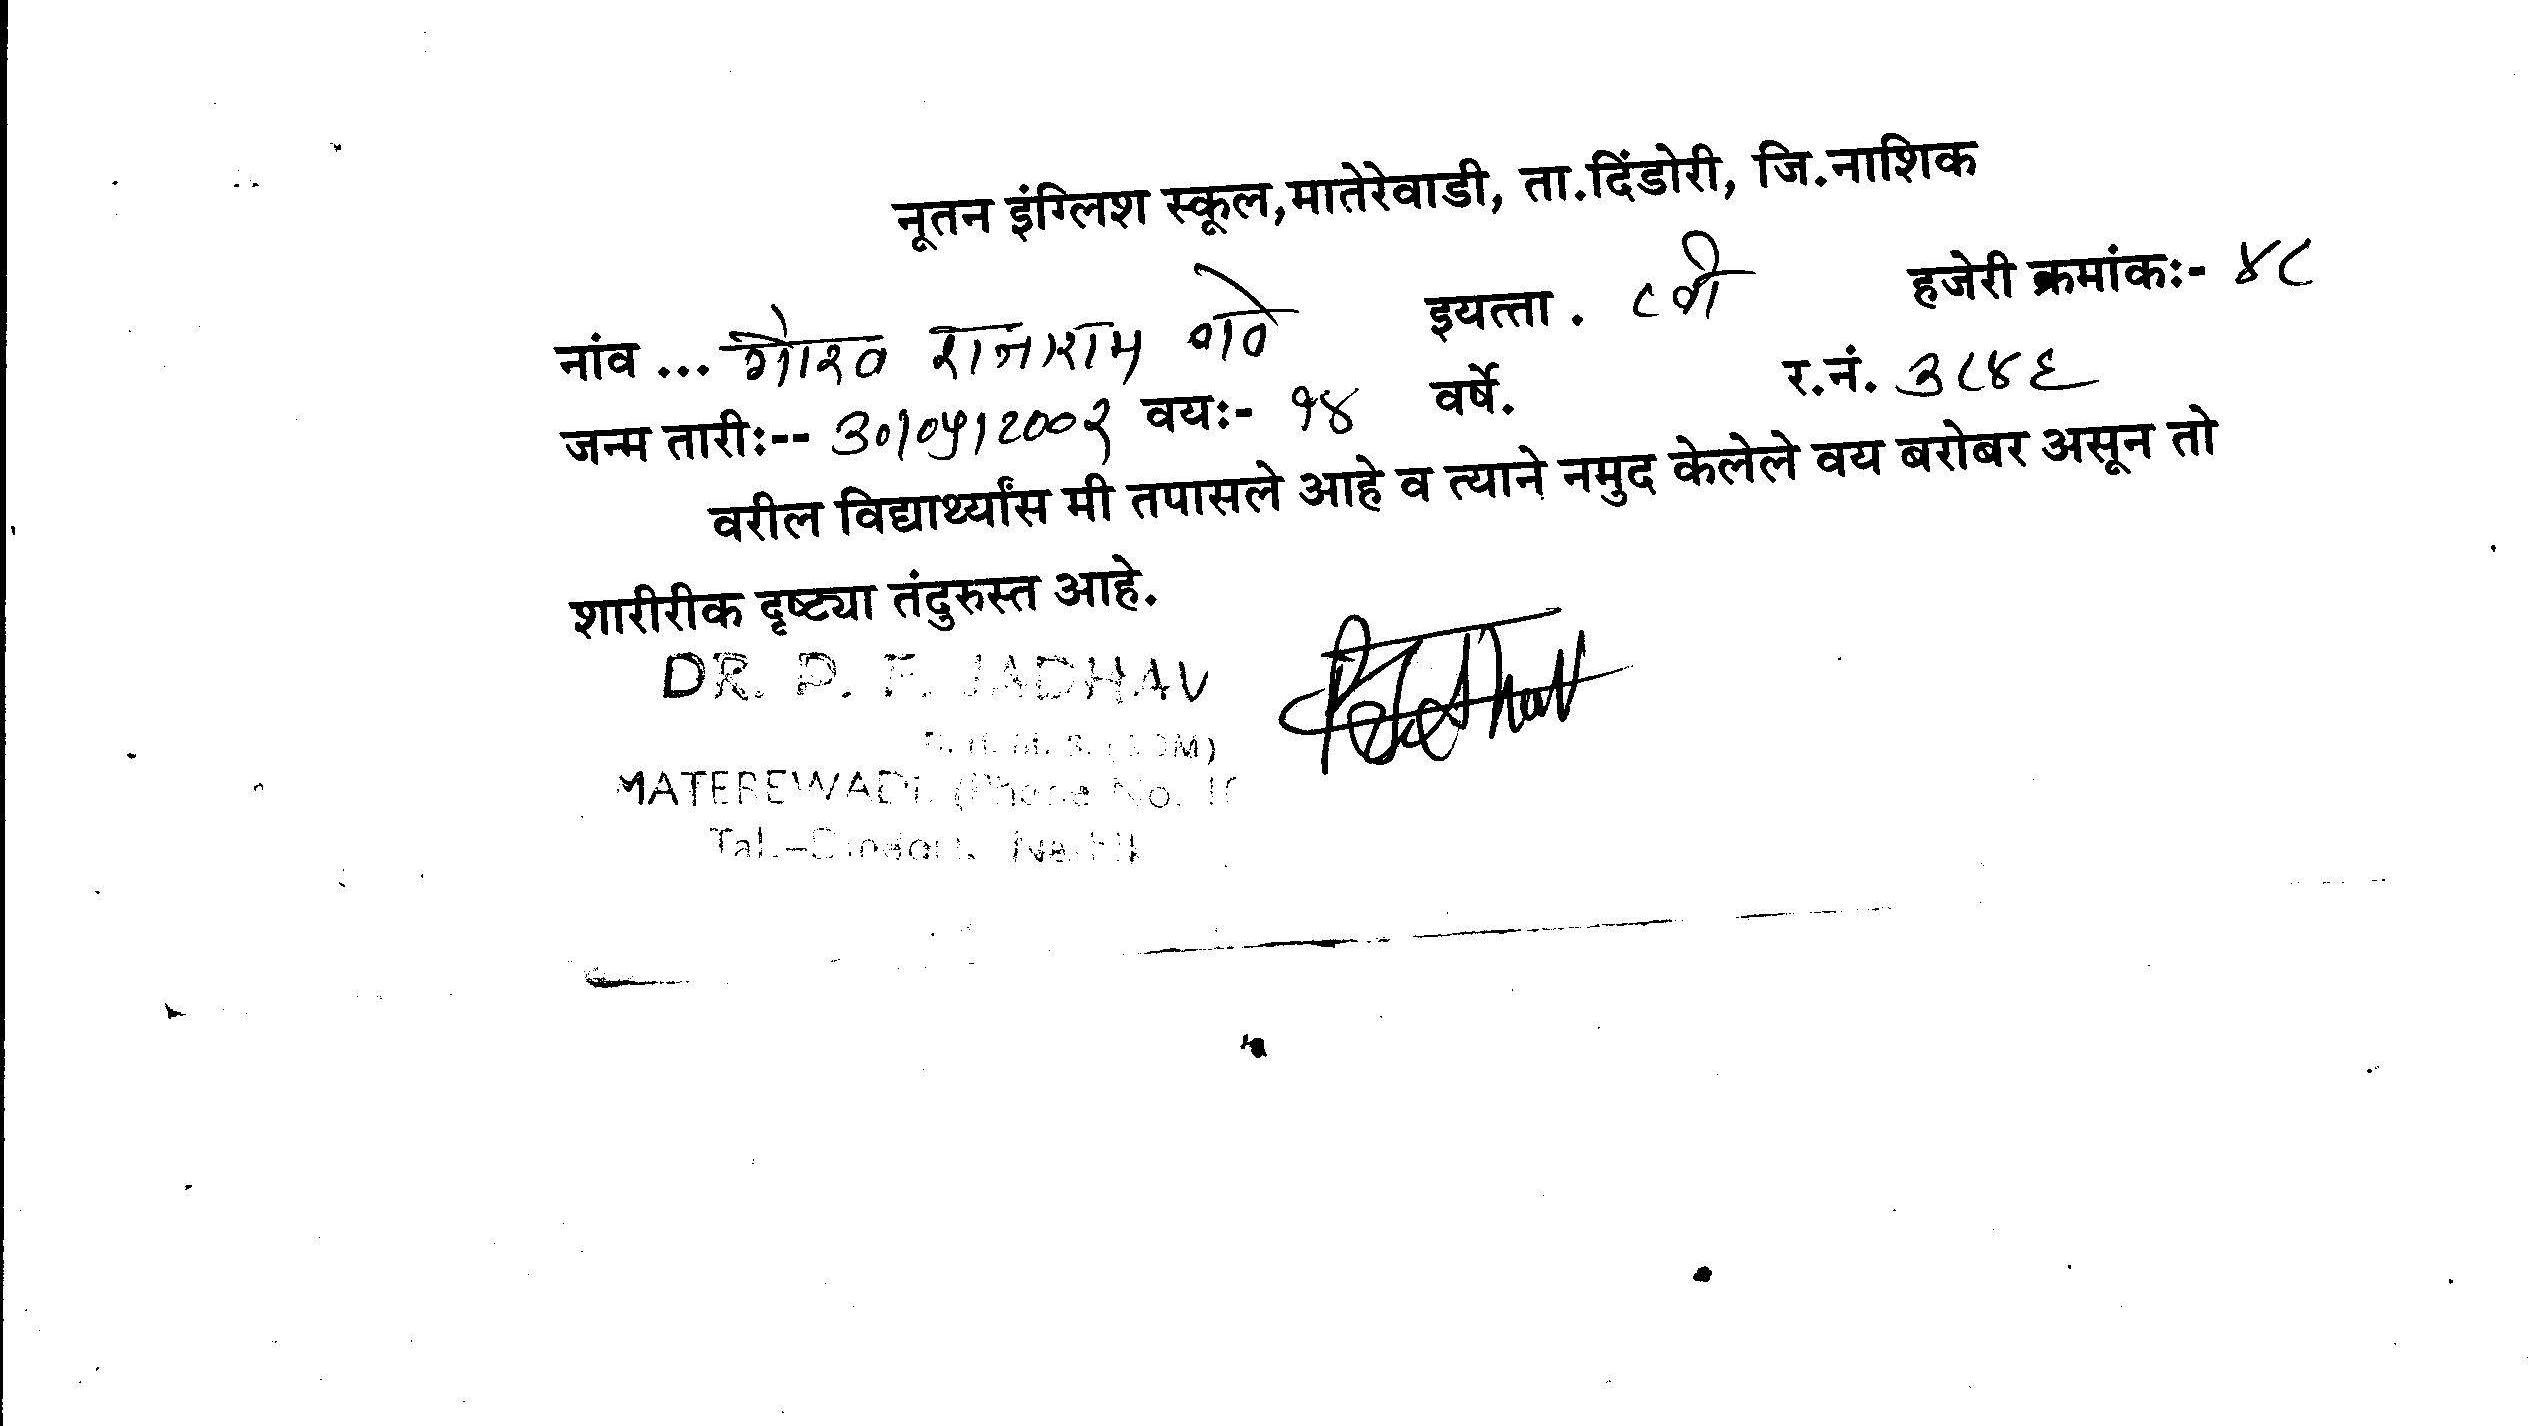 नूतन इंग्लिश स्कूल,मातेरेवाडी, ता.दिंडोरी, जि.नाशिक
नांव ... गौरव राजाराम गवे इयत्ता . ८वी हजेरी क्रमांकः- ४८
जन्म तारीः-- ३०/०५/2००२ वयः- १४ वर्षे. र.नं. ३८४६
वरील विद्यार्थ्यांस मी तपासले आहे व त्याने नमुद केलेले वय बरोबर असून तो
शारीरीक दृष्ट्या तंदुरुस्त आहे.
DR. P. F. JADHAV
MATEREWADI. (Phone No. 10
Tal.-Dindori, Nashik